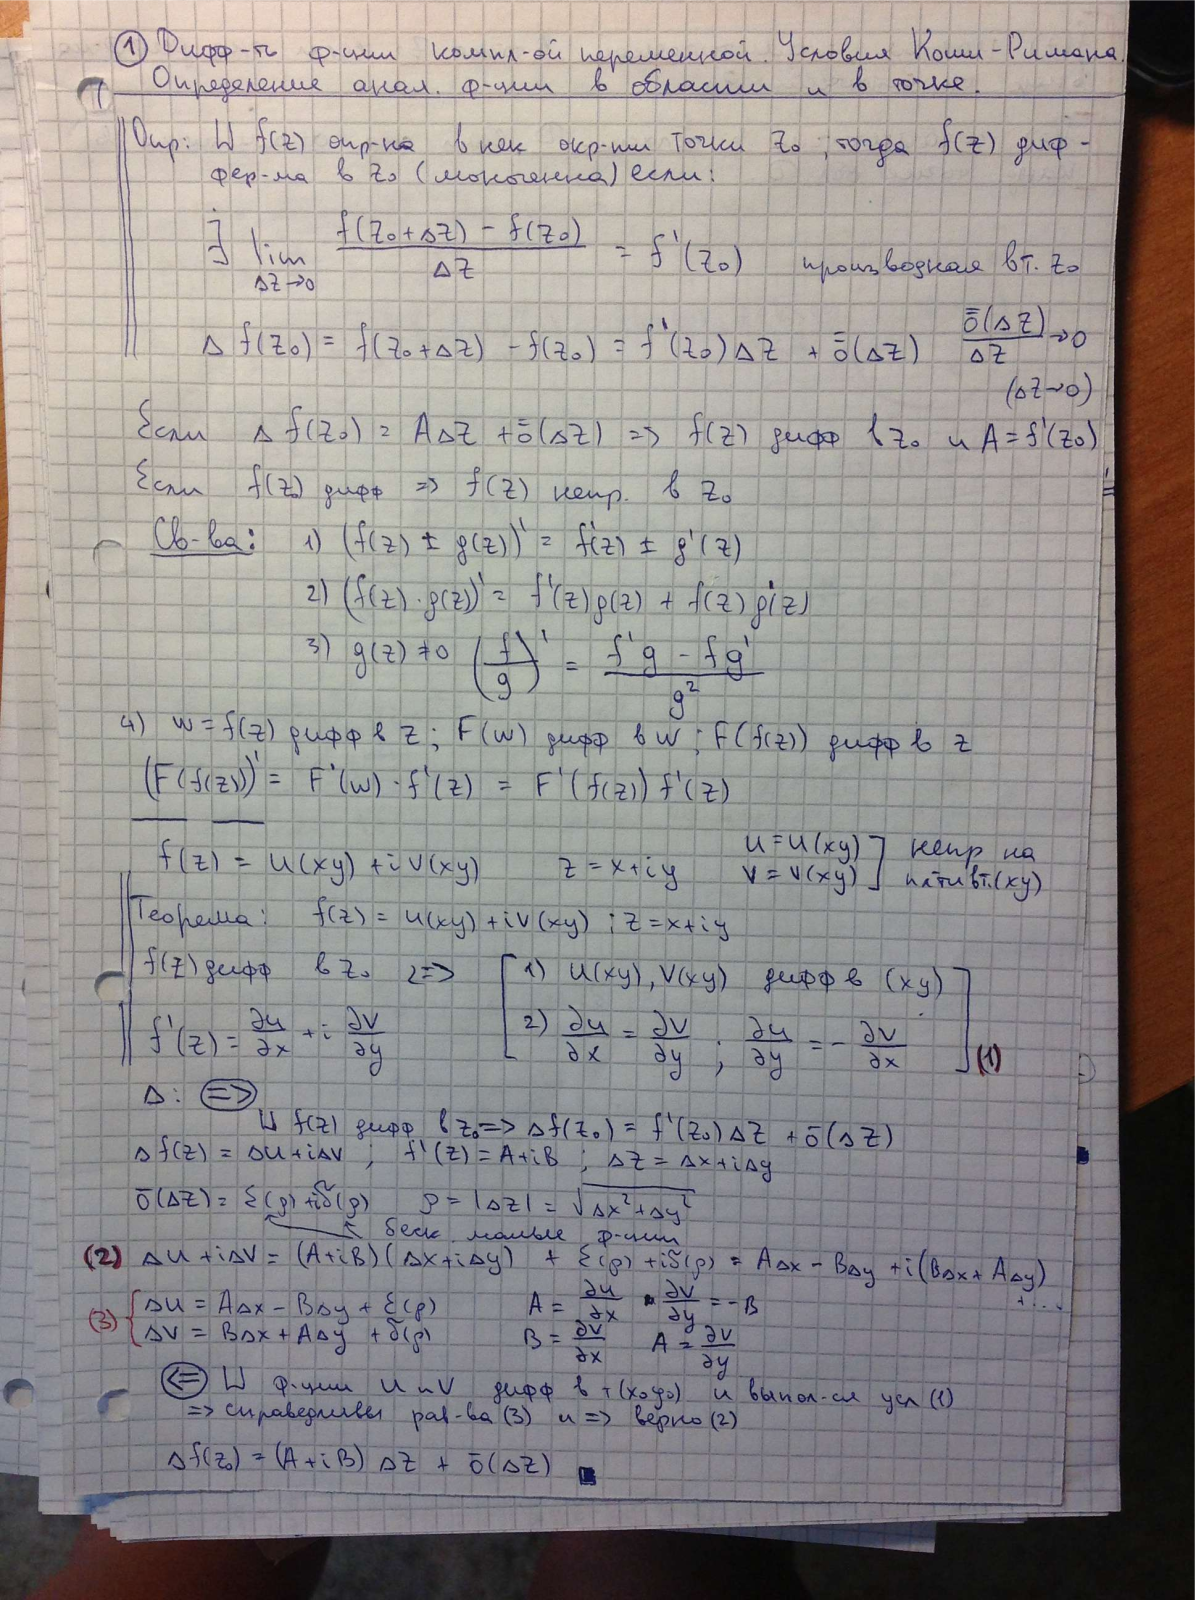 ① Дифф-ть ф-ции компл-ой переменной. Условия Коши-Римана.
Определение анал. ф-ции в области и в точке.
Опр: ∐ f(z) опр-на в нек окр-ти точки z₀, тогда f(z) диф-
фер-ма в z₀ (моногенна) если:
∃ lim_{Δz→0} (f(z₀+Δz) - f(z₀))/Δz = f'(z₀) производная в т. z₀
Δf(z₀) = f(z₀+Δz) - f(z₀) = f'(z₀)Δz + ō(Δz) ō(Δz)/Δz →0
(Δz→0)
Если Δf(z₀) = AΔz + ō(Δz) => f(z) дифф в z₀ и A = f'(z₀)
Если f(z) дифф => f(z) непр. в z₀
Св-ва: 1) (f(z) ± g(z))' = f'(z) ± g'(z)
2) (f(z)·g(z))' = f'(z)g(z) + f(z)g'(z)
3) g(z) ≠ 0 (f/g)' = (f'g - fg')/g²
4) w = f(z) дифф в z; F(w) дифф в w; F(f(z)) дифф в z
(F(f(z)))' = F'(w)·f'(z) = F'(f(z)) f'(z)
f(z) = u(xy) + iv(xy) z = x+iy u = u(xy) v = v(xy) ] непр на
пл-ти в т.(xy)
Теорема: f(z) = u(xy) + iv(xy); z = x+iy
f(z) дифф в z₀ <=> [ 1) u(xy), v(xy) дифф в (xy)
f'(z) = ∂u/∂x + i ∂v/∂y 2) ∂u/∂x = ∂v/∂y; ∂u/∂y = - ∂v/∂x ] (1)
Δ: (=>)
∐ f(z) дифф в z₀ => Δf(z₀) = f'(z₀)Δz + ō(Δz)
Δf(z) = Δu + iΔv; f'(z) = A+iB; Δz = Δx+iΔy
ō(Δz) = ε(ρ) + iδ(ρ) ρ = |Δz| = √(Δx²+Δy²)
беск малые ф-ции
(2) Δu + iΔv = (A+iB)(Δx+iΔy) + ε(ρ) + iδ(ρ) = AΔx - BΔy + i(BΔx + AΔy)
+ ...
(3) { Δu = AΔx - BΔy + ε(ρ) A = ∂u/∂x ∂v/∂y = -B
Δv = BΔx + AΔy + δ(ρ) B = ∂v/∂x A = ∂v/∂y
(<=) ∐ ф-ции u и v дифф в т(x₀y₀) и выпол-ся усл (1)
=> справедливы рав-ва (3) и => верно (2)
Δf(z₀) = (A+iB) Δz + ō(Δz) ■